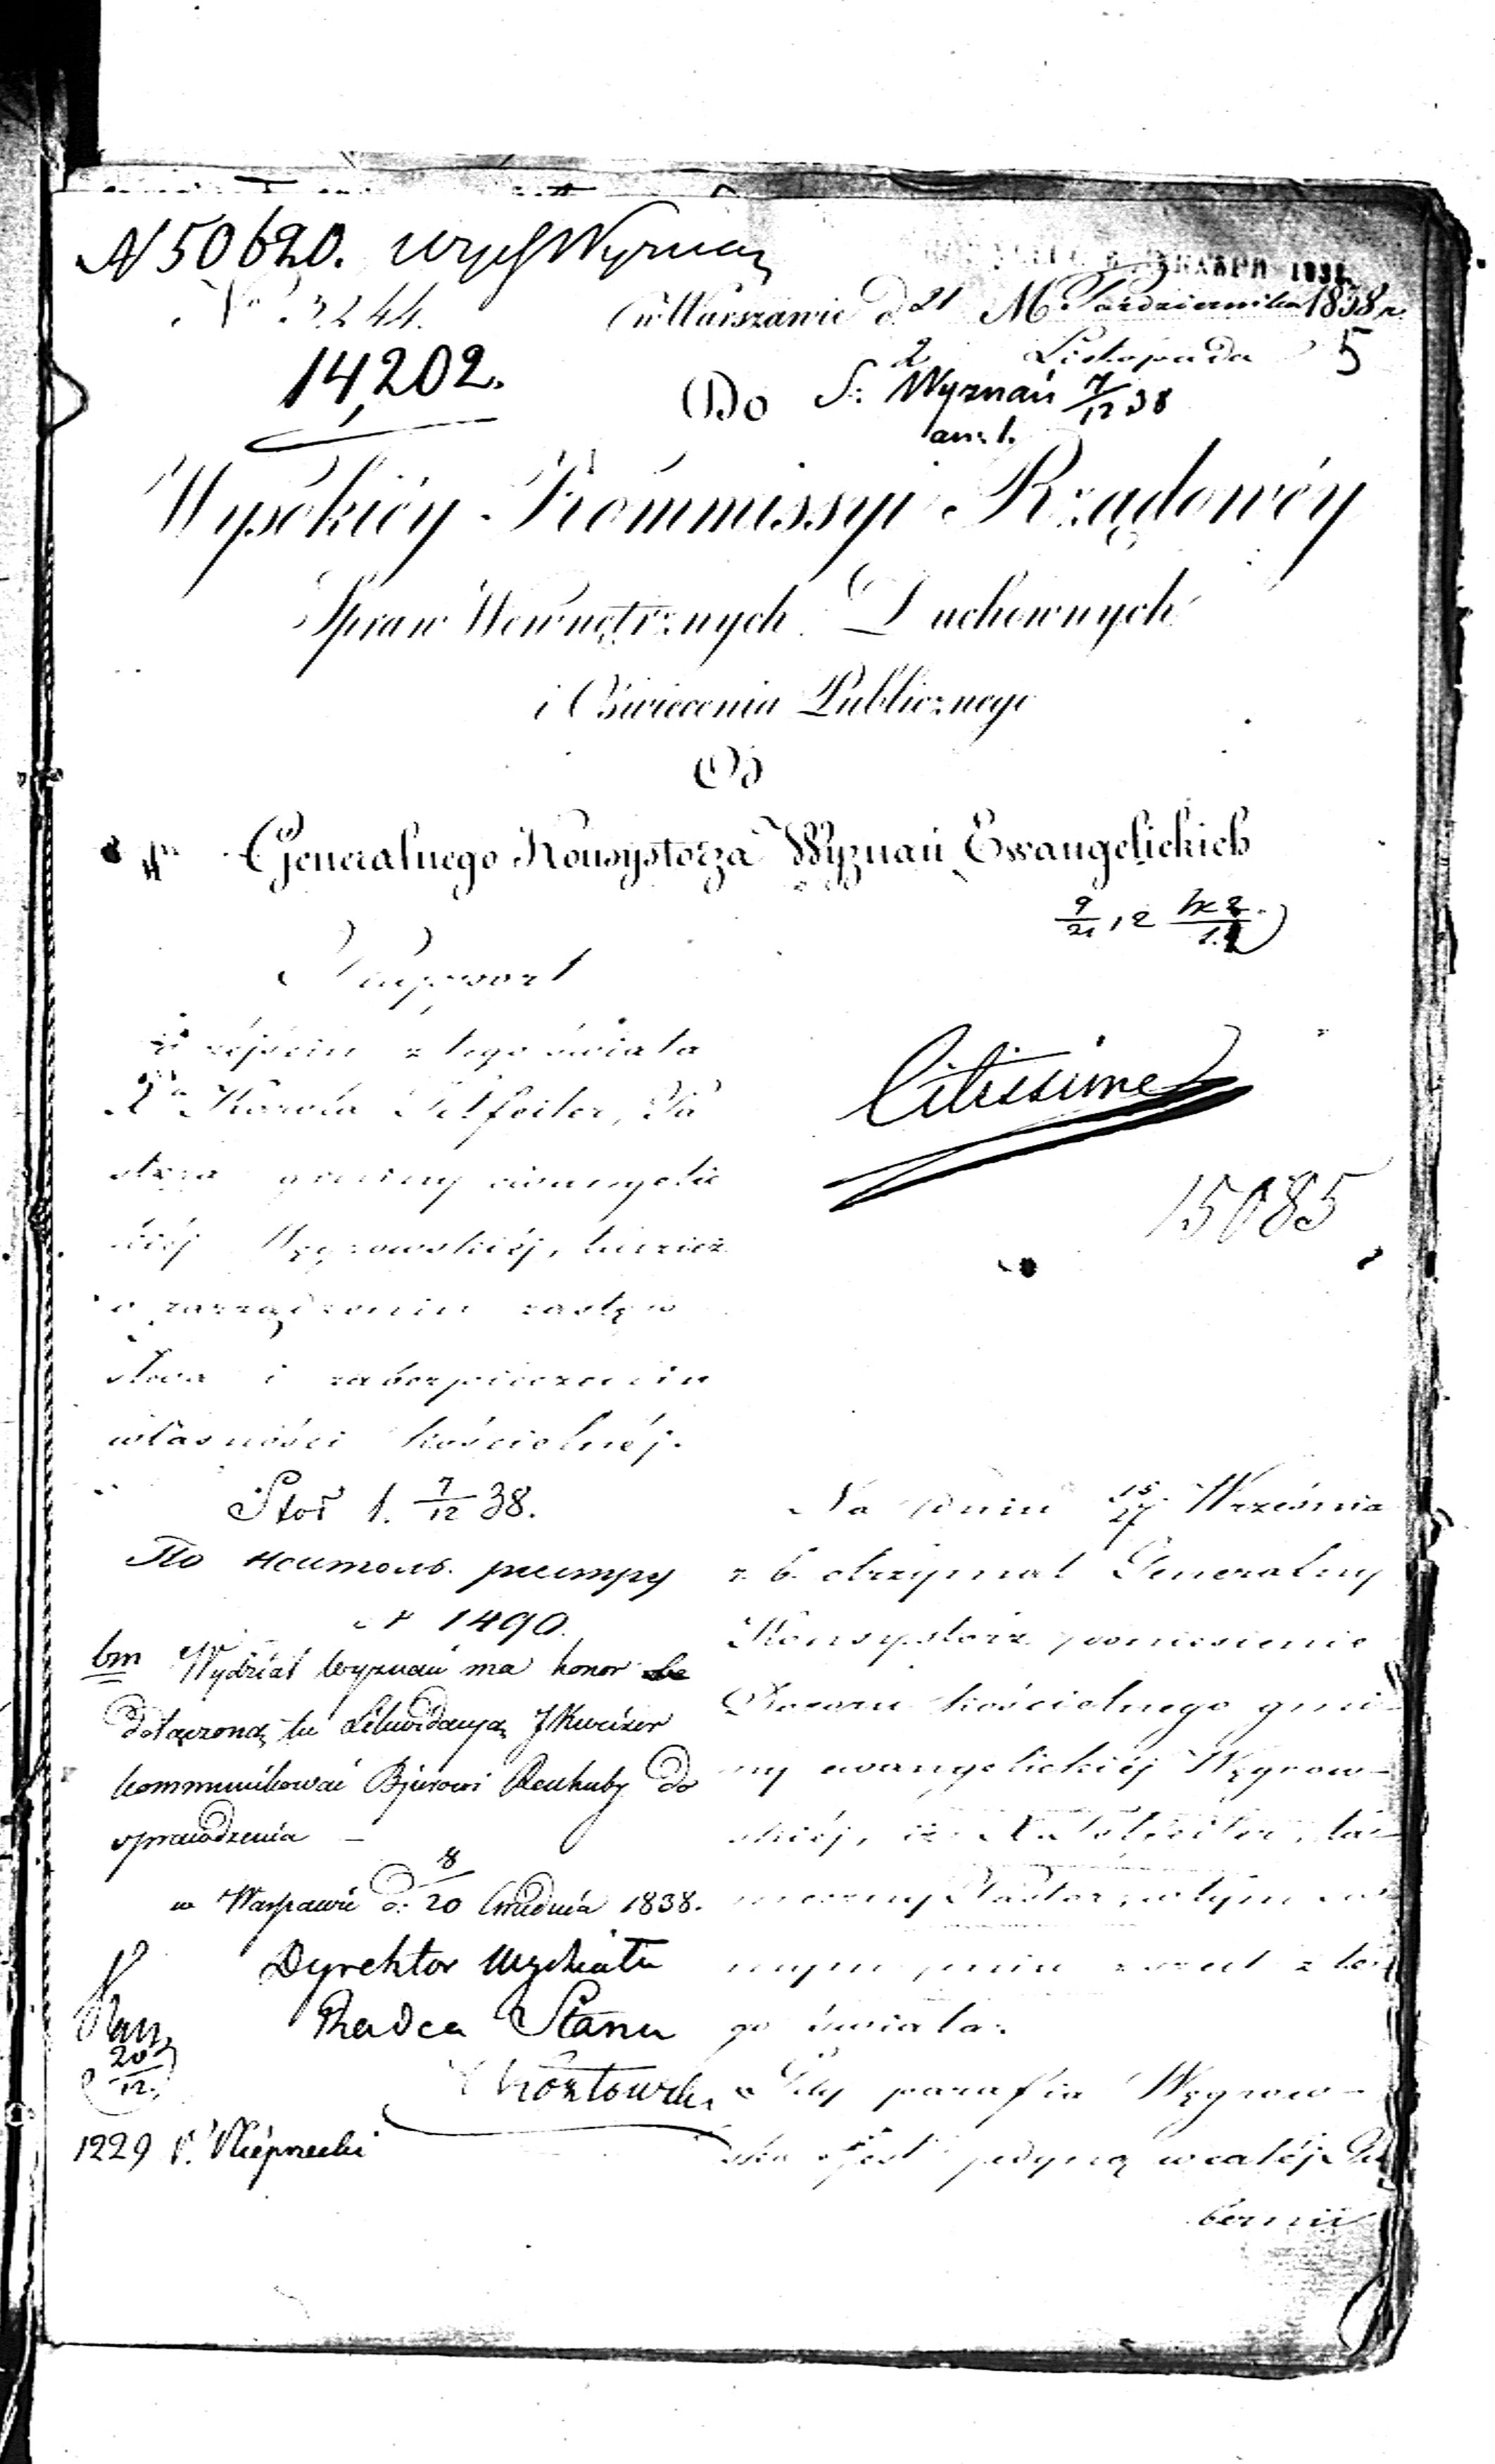 N 50620. Wyznań
N 3244.
w Warszawie d. 21 M. Października 1838 r.
2 Listopada 5
14,202.
Do S: Wyznań 7/12 38
Wysokiéy Kommissyi Rządowéy
Spraw Wewnętrznych Duchownych
i Oświecenia Publicznego
Od
Generalnego Konsystorza Wyznań Ewangelickich
9/21 12
Rapport
o zejściu z tego świata
Xa Karola Tetfeiler, Pa
stora gminy ewangelic
kiéj Węgrowskiéj, tudzież
o zarządzeniu zastęp
stwa i zabezpieczeniu
własności kościelnéj.
Citissime
15085
Stoł 1. 7/12 38.
По настоль. реестру
N 1490.
bm Wydział Wyznań ma honor
dołączoną tu Likwidacyą
kommunikować Bjurowi Rachuby do
sprawdzenia
w Warszawie d: 8/20 Grudnia 1838.
Dyrektor Wydziału
Radca Stanu
20/12
1229
Na dniu 15/27 Września
r. b. otrzymał Generalny
Konsystorz doniesienie
Dozoru kościelnego gmi-
ny ewangelickiéj Węgrow-
skiéj, iż Xa Tetfeiler, ta-
meczny Pastor, w tym
mym dniu zszedł z te-
go świata.
Gdy parafia Węgrow-
ska jest jedyną w całéj Gu
bernii